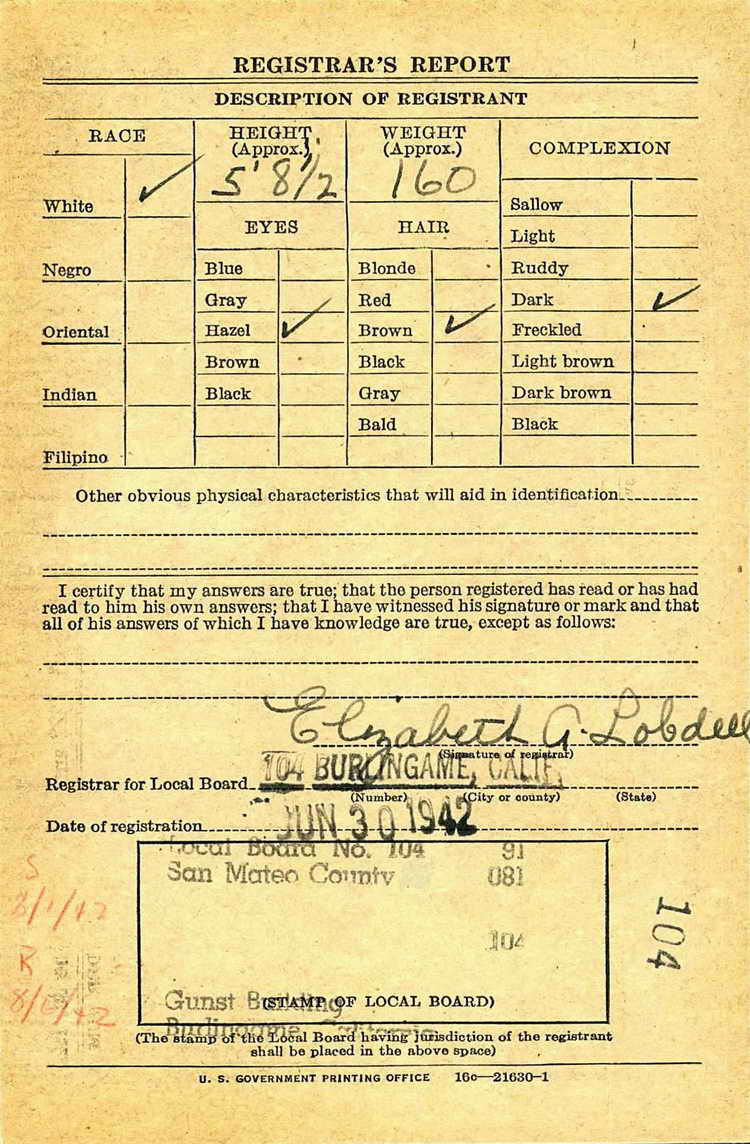 REGISTRAR'S REPORT
DESCRIPTION OF REGISTRANT
RACE
HEIGHT
(Approx.)
WEIGHT
(Approx.)
COMPLEXION
5' 8 1/2
160
White ✓
Negro
Oriental
Indian
Filipino
EYES
Blue
Gray
Hazel ✓
Brown
Black
HAIR
Blonde
Red
Brown ✓
Black
Gray
Bald
Sallow
Light
Ruddy
Dark ✓
Freckled
Light brown
Dark brown
Black
Other obvious physical characteristics that will aid in identification
I certify that my answers are true; that the person registered has read or has had
read to him his own answers; that I have witnessed his signature or mark and that
all of his answers of which I have knowledge are true, except as follows:
Elizabeth A. Lobdell
(Signature of registrar)
Registrar for Local Board 104 BURLINGAME, CALIF.
(Number) (City or county) (State)
Date of registration JUN 30 1942
Local Board No. 104 91
San Mateo County 081
104
Gunst Building
(STAMP OF LOCAL BOARD)
Burlingame, California
(The stamp of the Local Board having jurisdiction of the registrant
shall be placed in the above space)
104
S
8/1/42
R
8/6/42
U. S. GOVERNMENT PRINTING OFFICE 16c—21630-1